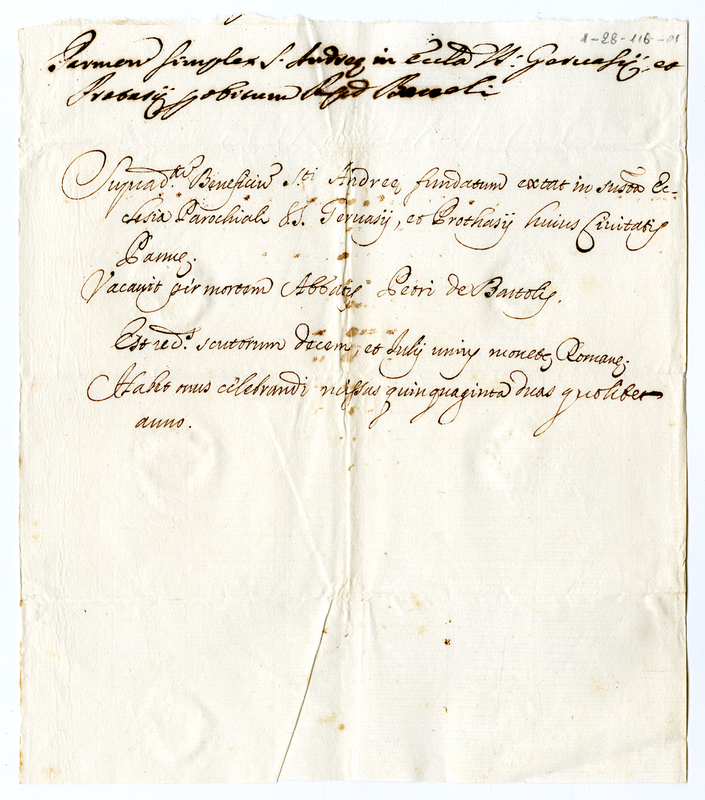 1-28-116-01
Parmen Simplex S. Andreę in Eccla SS: Gervasij, et
Protasij p obitum
Supradtũ Beneficiũ Sti Andreę fundatum extat in suptã Ec-
clesia Parochiali SS. Gervasij, et Prothasij huius Civitatis
Parmę.
Vacavit per mortem Abbatis Petri de Bartolis.
Est redts scutorum decem, et Julij unius monetę Romanę.
Habet onus celebrandi missas quinquaginta duas quolibet
anno.